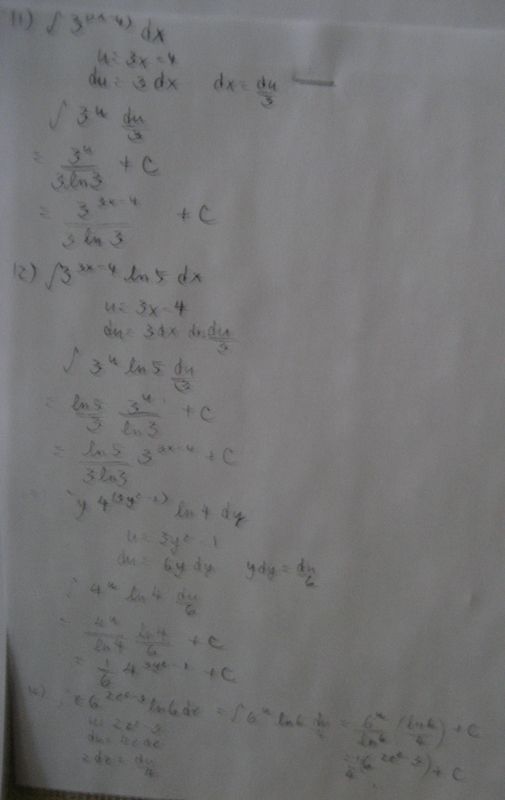 11) ∫ 3^(3x-4) dx
u = 3x - 4
du = 3 dx dx = du/3
∫ 3^u du/3
= 3^u/(3 ln 3) + C
= 3^(3x-4)/(3 ln 3) + C
12) ∫ 3^(3x-4) ln 5 dx
u = 3x - 4
du = 3dx du/3
∫ 3^u ln 5 du/3
= ln 5/3 3^u/ln 3 + C
= ln 5/(3 ln 3) 3^(3x-4) + C
y 4^(3y²-1) ln 4 dy
u = 3y² - 1
du = 6y dy y dy = du/6
4^u ln 4 du/6
= 4^u/ln 4 ln 4/6 + C
= 1/6 4^(3y²-1) + C
6 ln 6 = ∫ 6^u ln 6 = 6^u/ln 6 (ln 6/4) + C
+ C